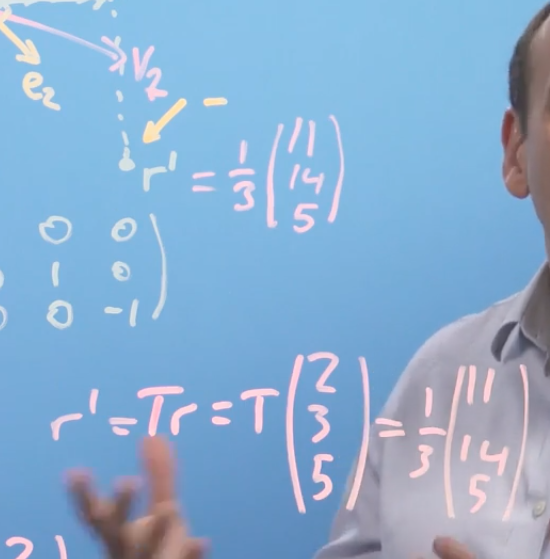 v₂
e₂
r' = 1/3 (11 14 5)
0 0
1 0
0 0 -1
r' = Tr = T (2 3 5) = 1/3 (11 14 5)